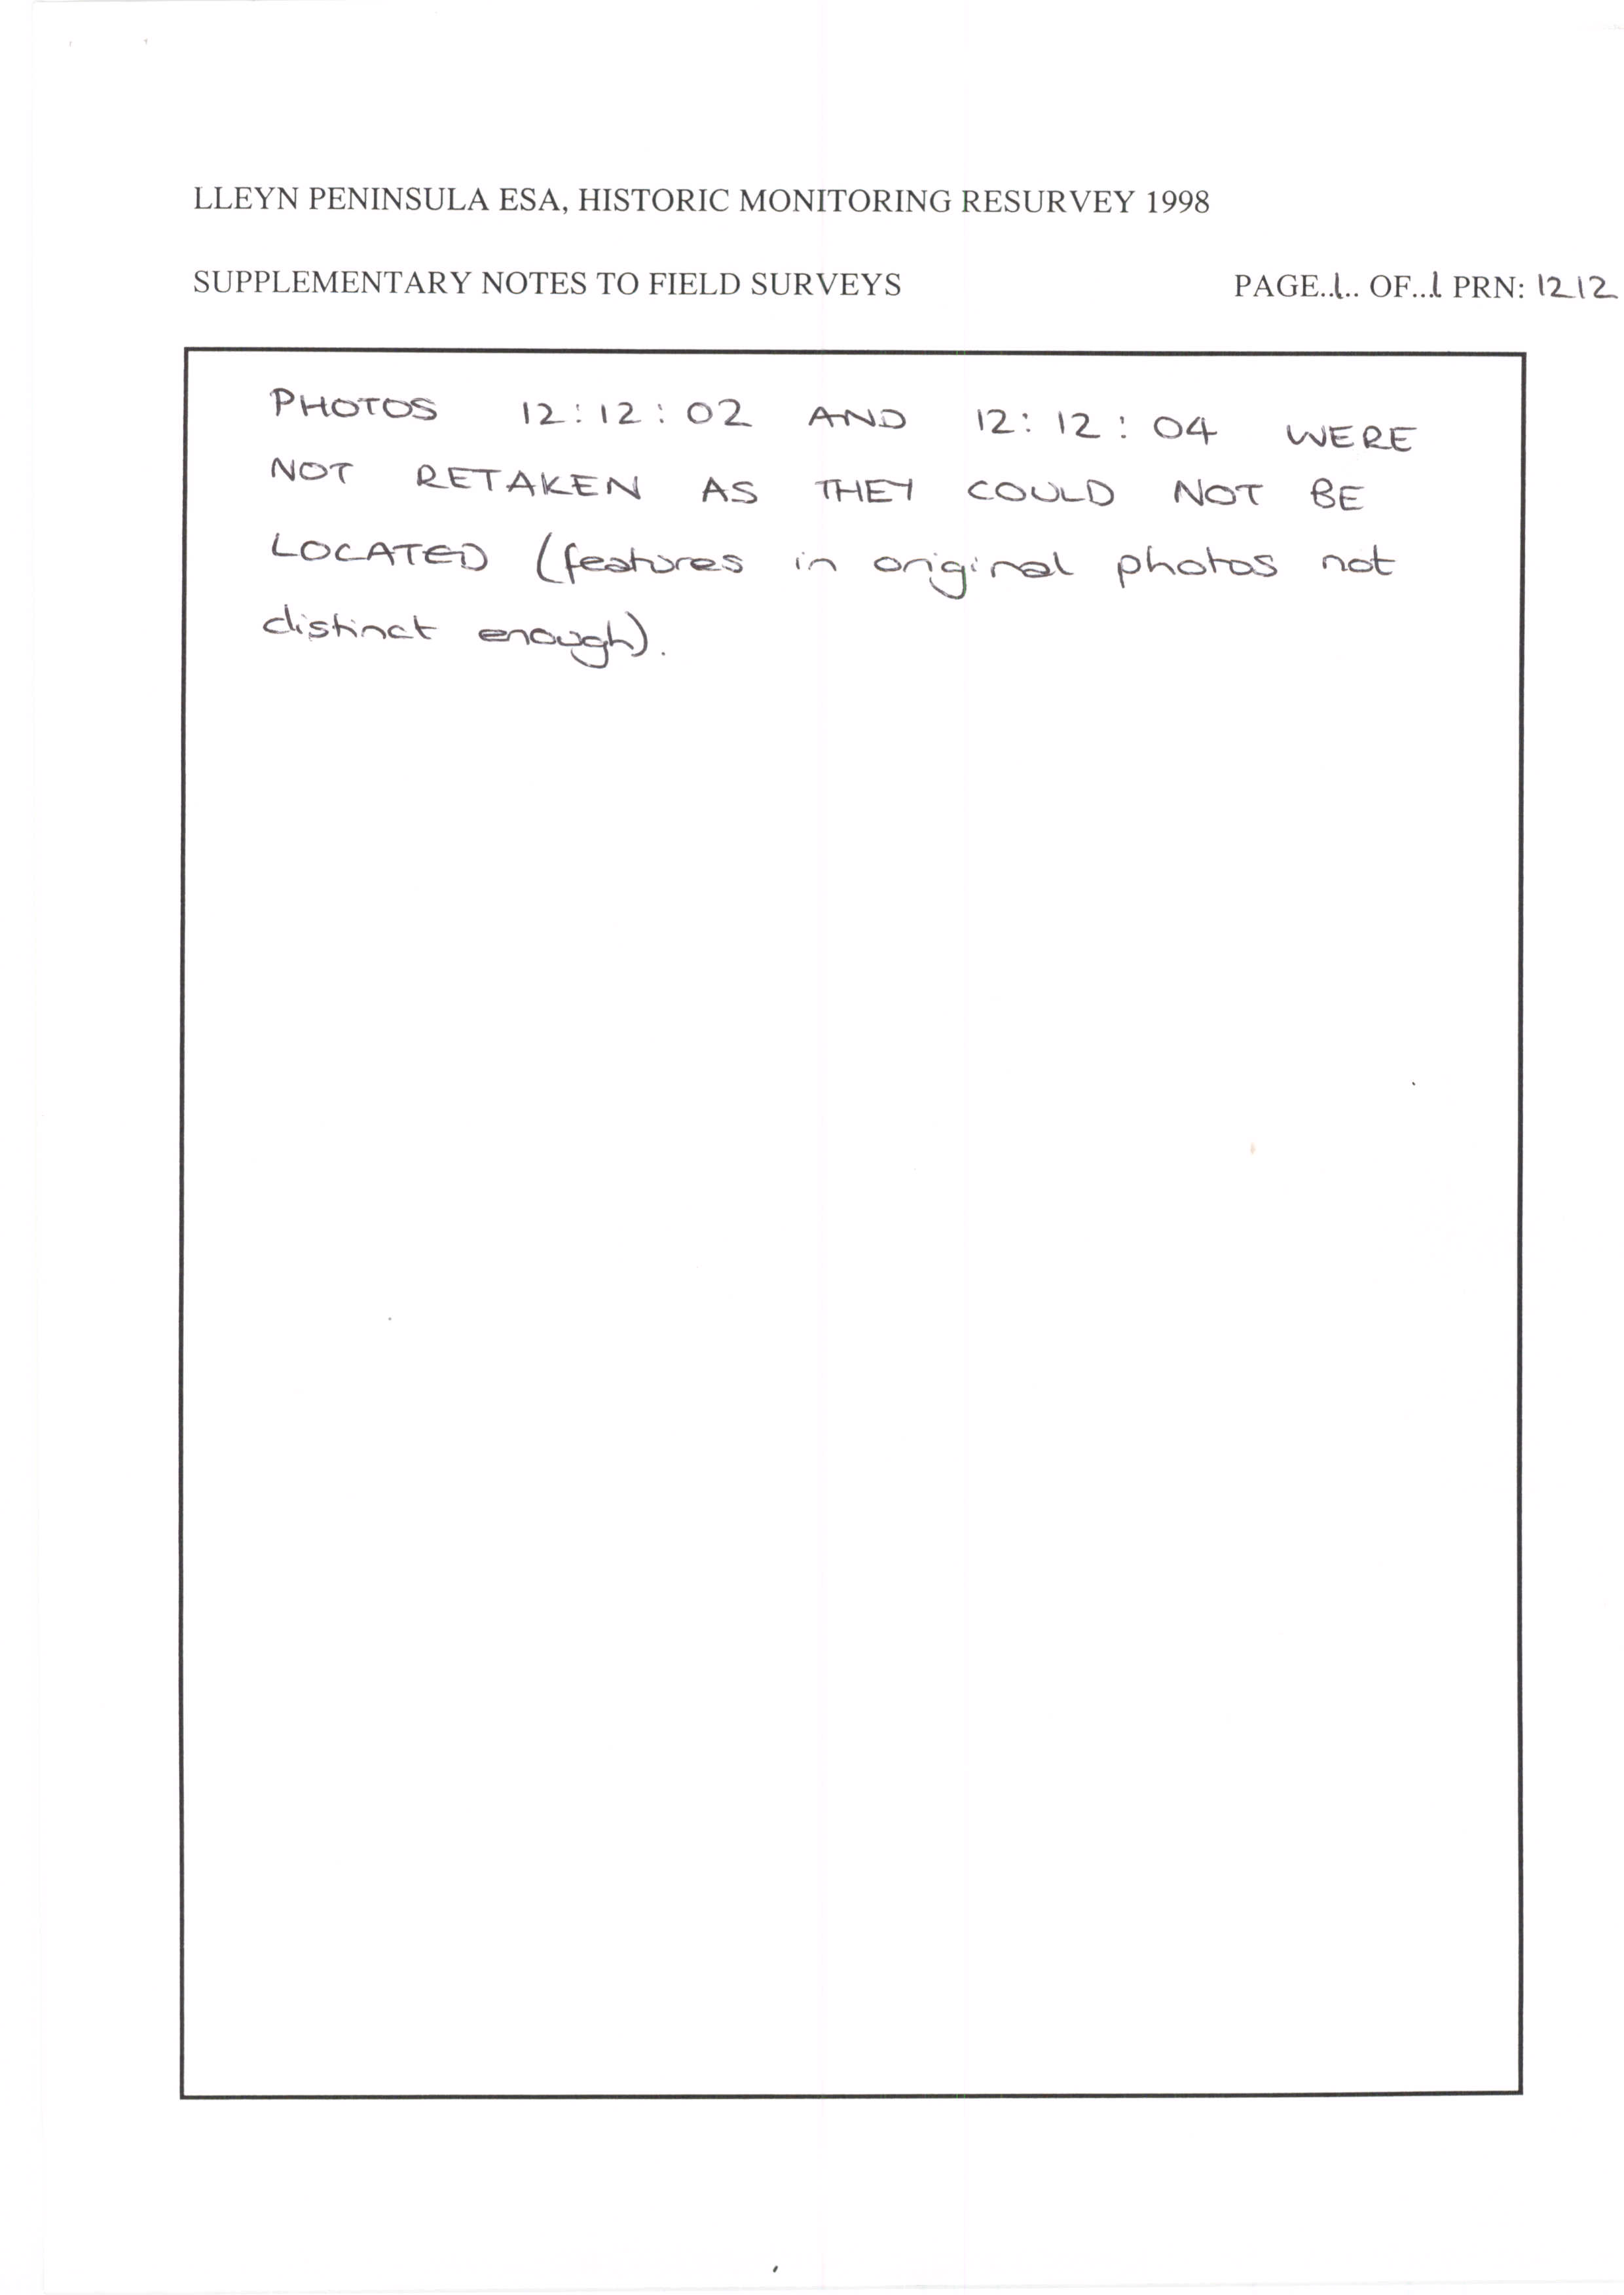 LLEYN PENINSULA ESA, HISTORIC MONITORING RESURVEY 1998
SUPPLEMENTARY NOTES TO FIELD SURVEYS PAGE..1.. OF...1 PRN: 1212
PHOTOS 12:12:02 AND 12:12:04 WERE
NOT RETAKEN AS THEY COULD NOT BE
LOCATED (features in original photos not
distinct enough).